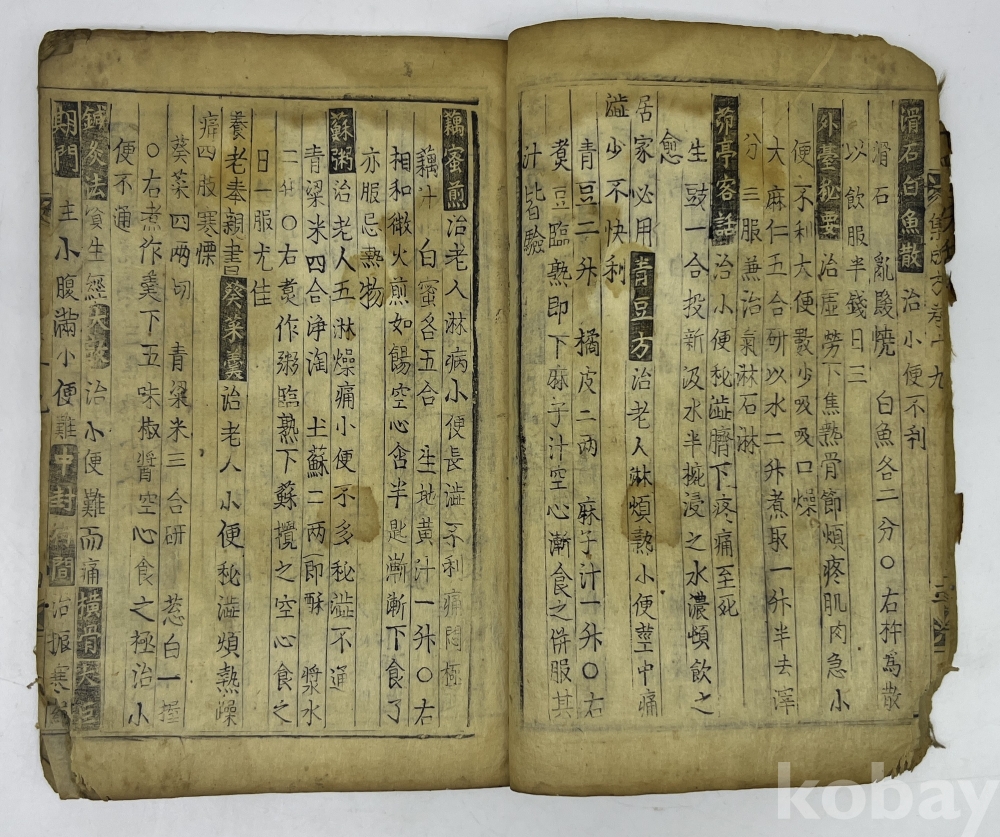 滑石白魚散治小便不利
滑石 亂髮燒 白魚各二分○右杵爲散
以飮服半錢日三
外臺秘要治虛勞下焦熱骨節煩疼肌肉急小
便不利大便數少吸吸口燥
大麻仁五合硏以水二升煮取一升半去滓
分三服兼治氣淋石淋
茆亭客話治小便秘澁臍下疼痛至死
生豉一合投新汲水半椀浸之水濃頓飮之
愈
居家必用靑豆方治老人淋煩熱小便莖中痛
澁少不快利
靑豆二升 橘皮二兩 麻子汁一升○右
煮豆臨熟即下麻子汁空心漸食之倂服其
汁皆驗
藕蜜煎治老人淋病小便長澁不利痛悶極
藕汁 白蜜各五合 生地黃汁一升○右
相和微火煎如餳空心含半匙漸漸下食了
亦服忌熱物
蘇粥治老人五淋燥痛小便不多秘澁不通
靑梁米四合淨淘 土蘇二兩即酥 漿水
二升○右煮作粥臨熟下蘇攪之空心食之
日一服尤佳
養老奉親書葵菜羹治老人小便秘澁煩熱躁
痛四肢寒慄
葵菜四兩切 靑梁米三合硏 葱白一握
○右煮作羹下五味椒醬空心食之極治小
便不通
鍼灸法資生經大敦治小便難而痛橫骨
期門主小腹滿小便難中封行間治振寒